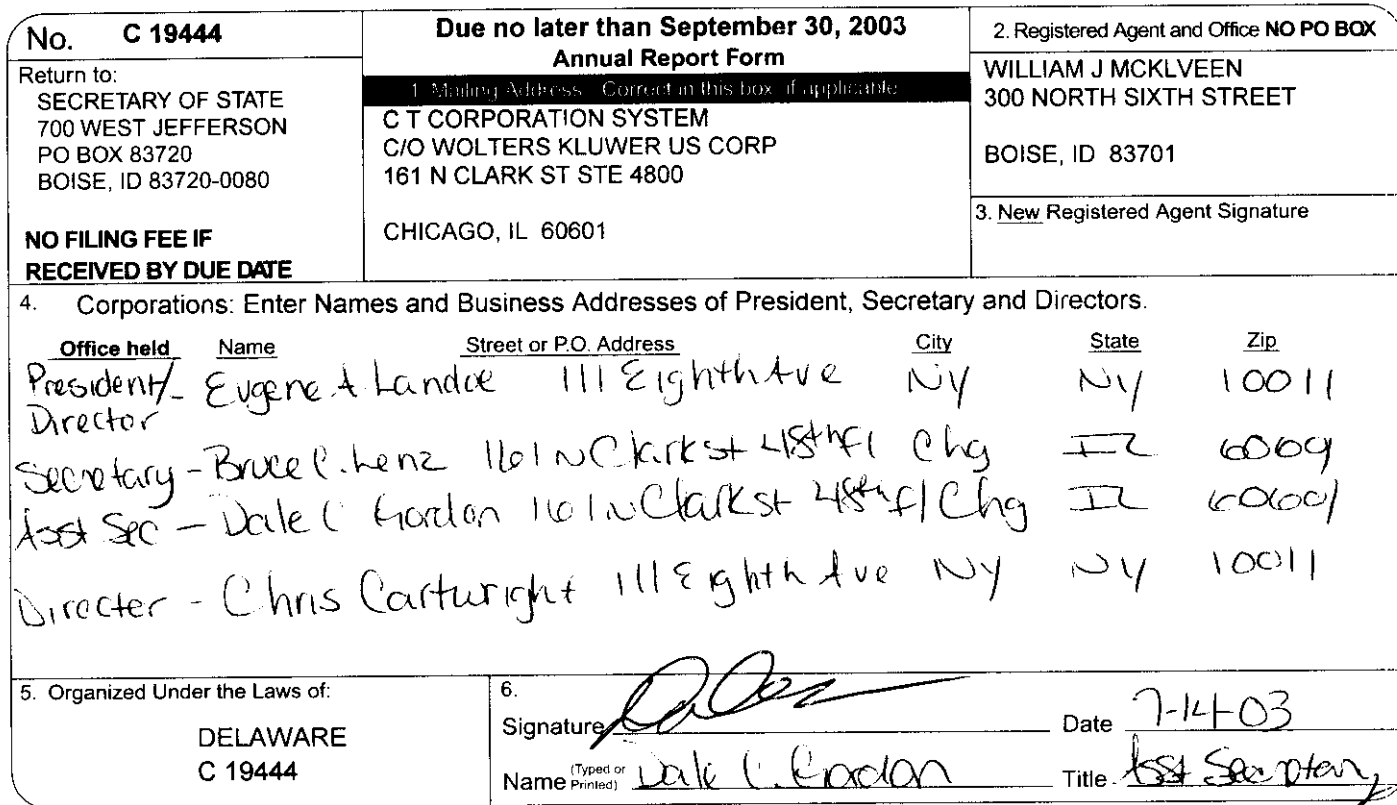 No. C 19444
Return to:
SECRETARY OF STATE
700 WEST JEFFERSON
PO BOX 83720
BOISE, ID 83720-0080
NO FILING FEE IF
RECEIVED BY DUE DATE
Due no later than September 30, 2003
Annual Report Form
1. Mailing Address: Correct in this box, if applicable
C T CORPORATION SYSTEM
C/O WOLTERS KLUWER US CORP
161 N CLARK ST STE 4800
CHICAGO, IL 60601
2. Registered Agent and Office NO PO BOX
WILLIAM J MCKLVEEN
300 NORTH SIXTH STREET
BOISE, ID 83701
3. New Registered Agent Signature
4. Corporations: Enter Names and Business Addresses of President, Secretary and Directors.
Office held Name Street or P.O. Address City State Zip
President/- Eugene A. 111 Eighth Ave NY NY 10011
Director
Secretary - Bruce C. Lenz 161 N Clark st 48th Fl Chg IL 60601
Asst Sec - Dale C Gordon 161 N Clark st 48th fl Chg IL 60601
Director - Chris Cartwright 111 Eighth Ave NY NY 10011
5. Organized Under the Laws of:
DELAWARE
C 19444
6.
Signature
Date 7-14-03
Name (Typed or Printed) Dale C. Gordon
Title Asst Secretary